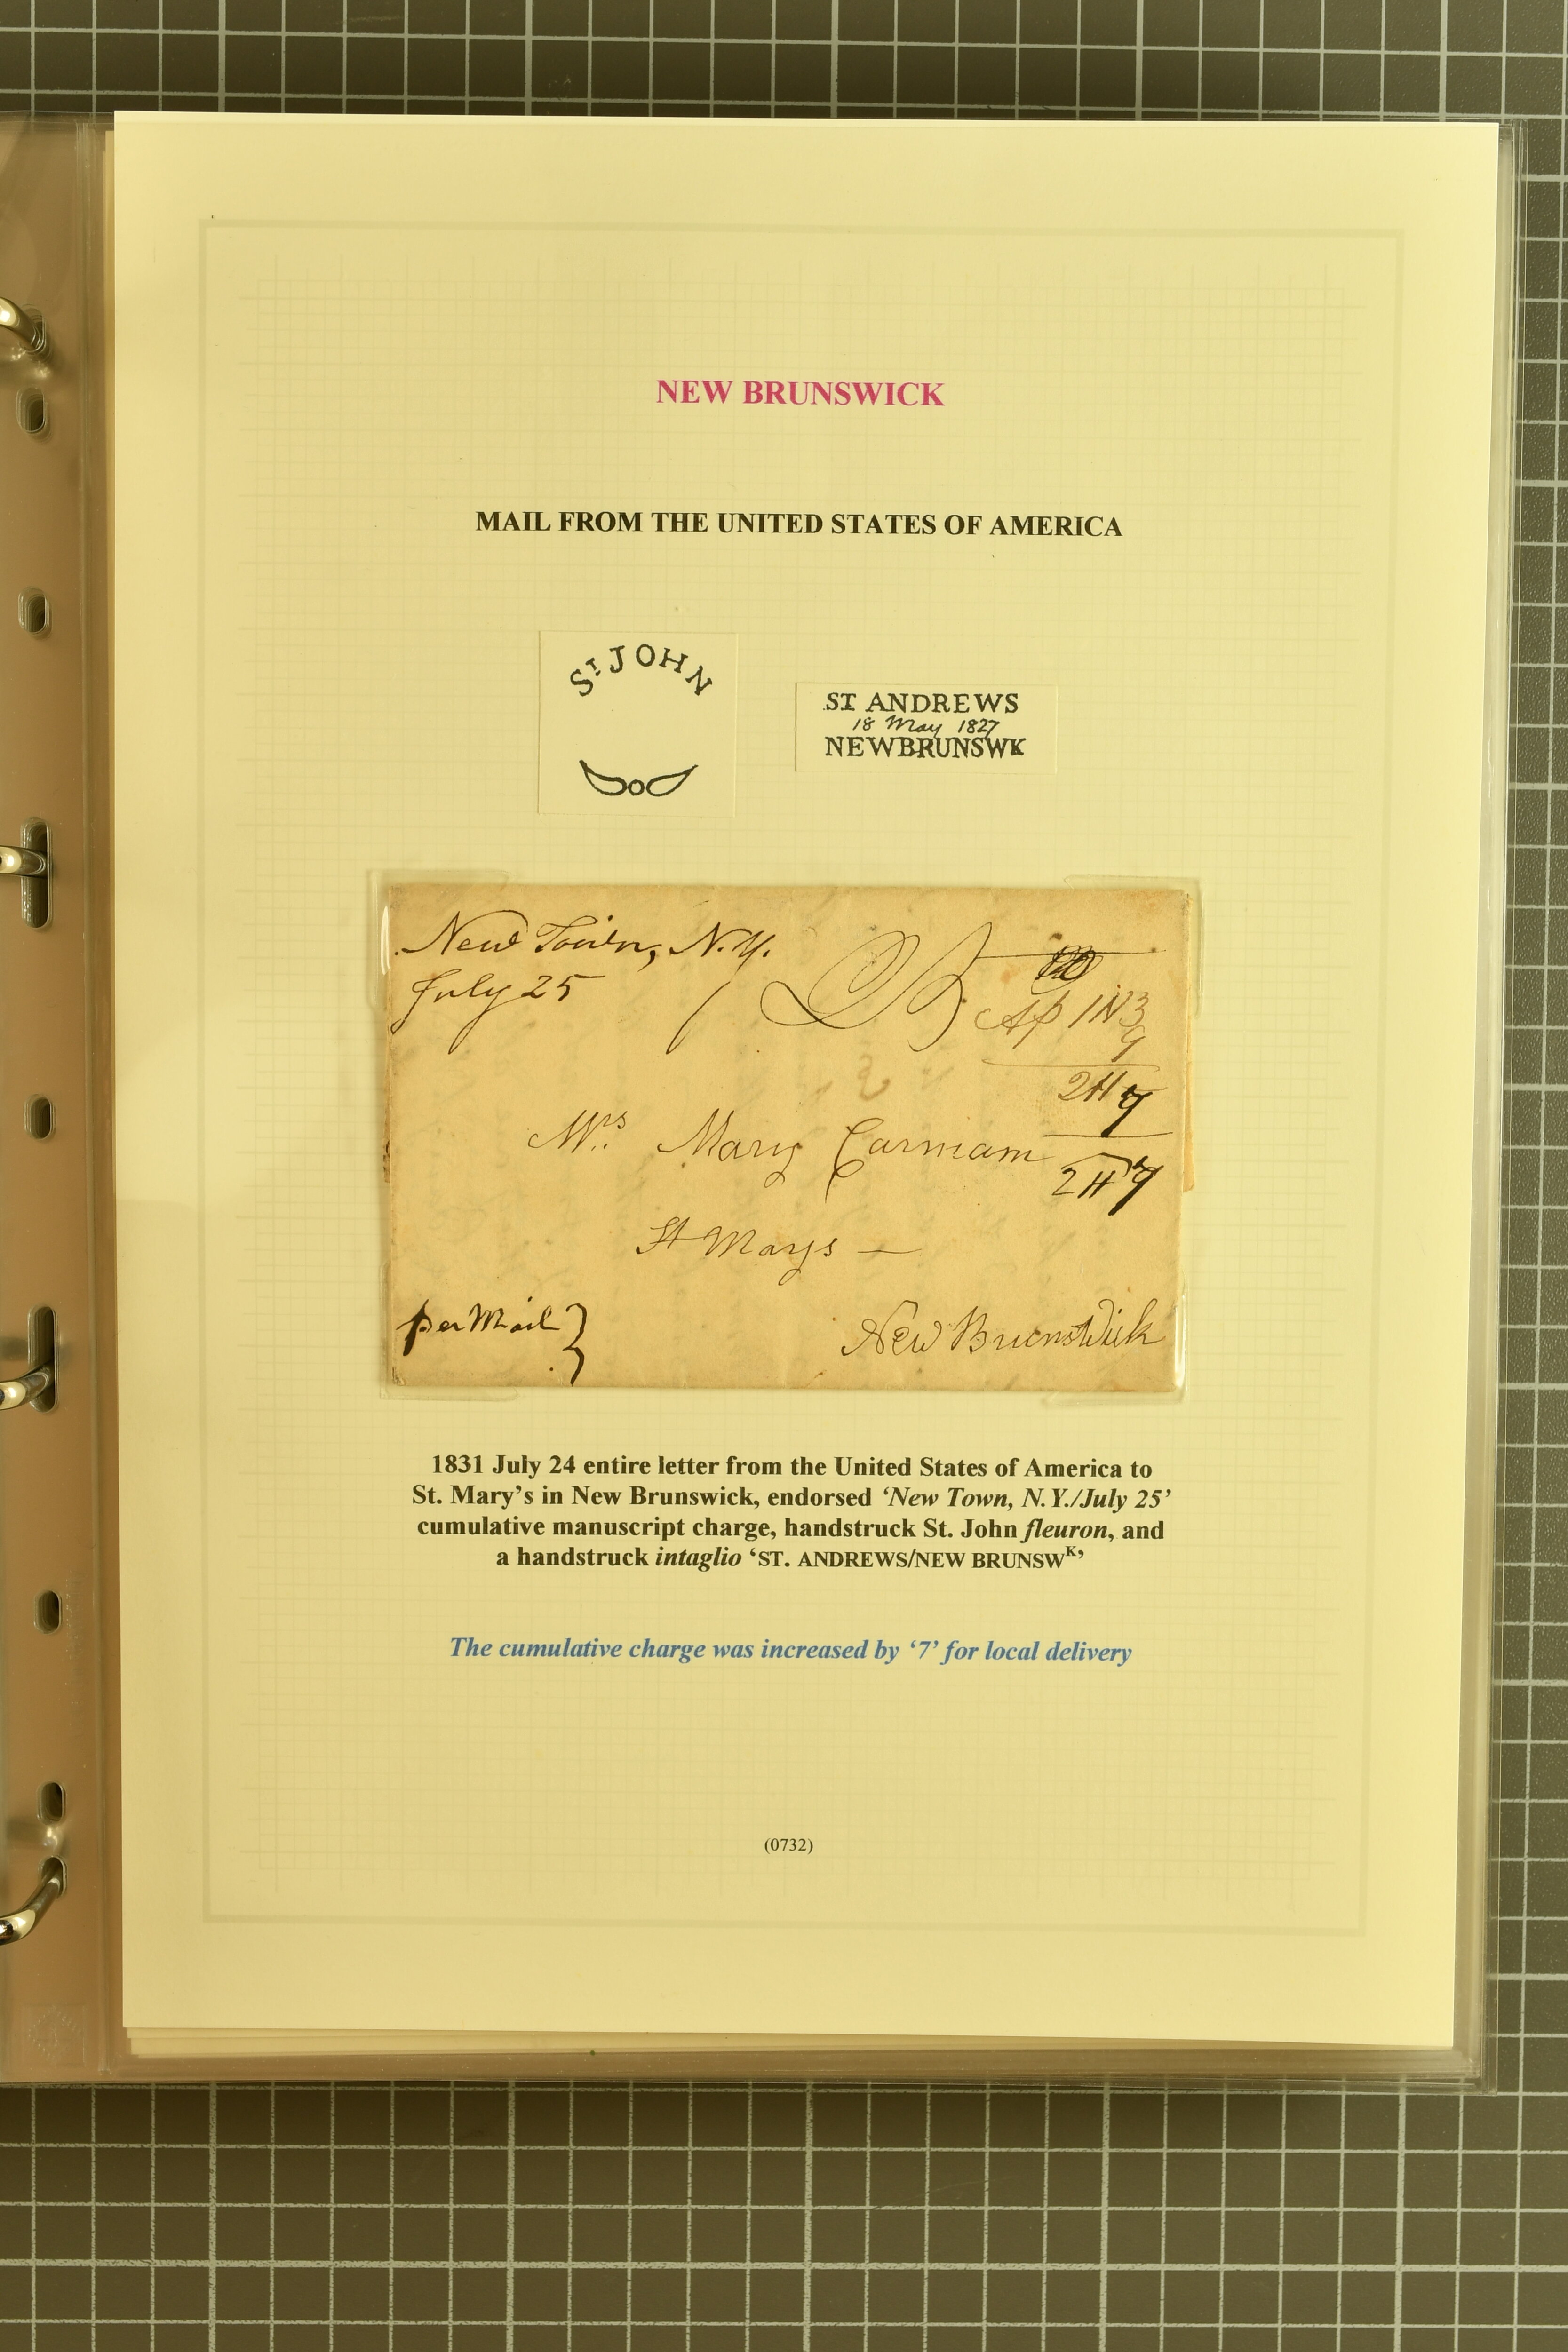 NEW BRUNSWICK
MAIL FROM THE UNITED STATES OF AMERICA
ST JOHN
ST ANDREWS
18 May 1827
NEWBRUNSWK
New Town, N.Y.
July 25
2H7
Mrs Mary Carmam
2H7
St Marys —
per Mail
New Brunswick
1831 July 24 entire letter from the United States of America to
St. Mary’s in New Brunswick, endorsed ‘New Town, N.Y./July 25’
cumulative manuscript charge, handstruck St. John fleuron, and
a handstruck intaglio ‘ST. ANDREWS/NEW BRUNSWK’
The cumulative charge was increased by ‘7’ for local delivery
(0732)